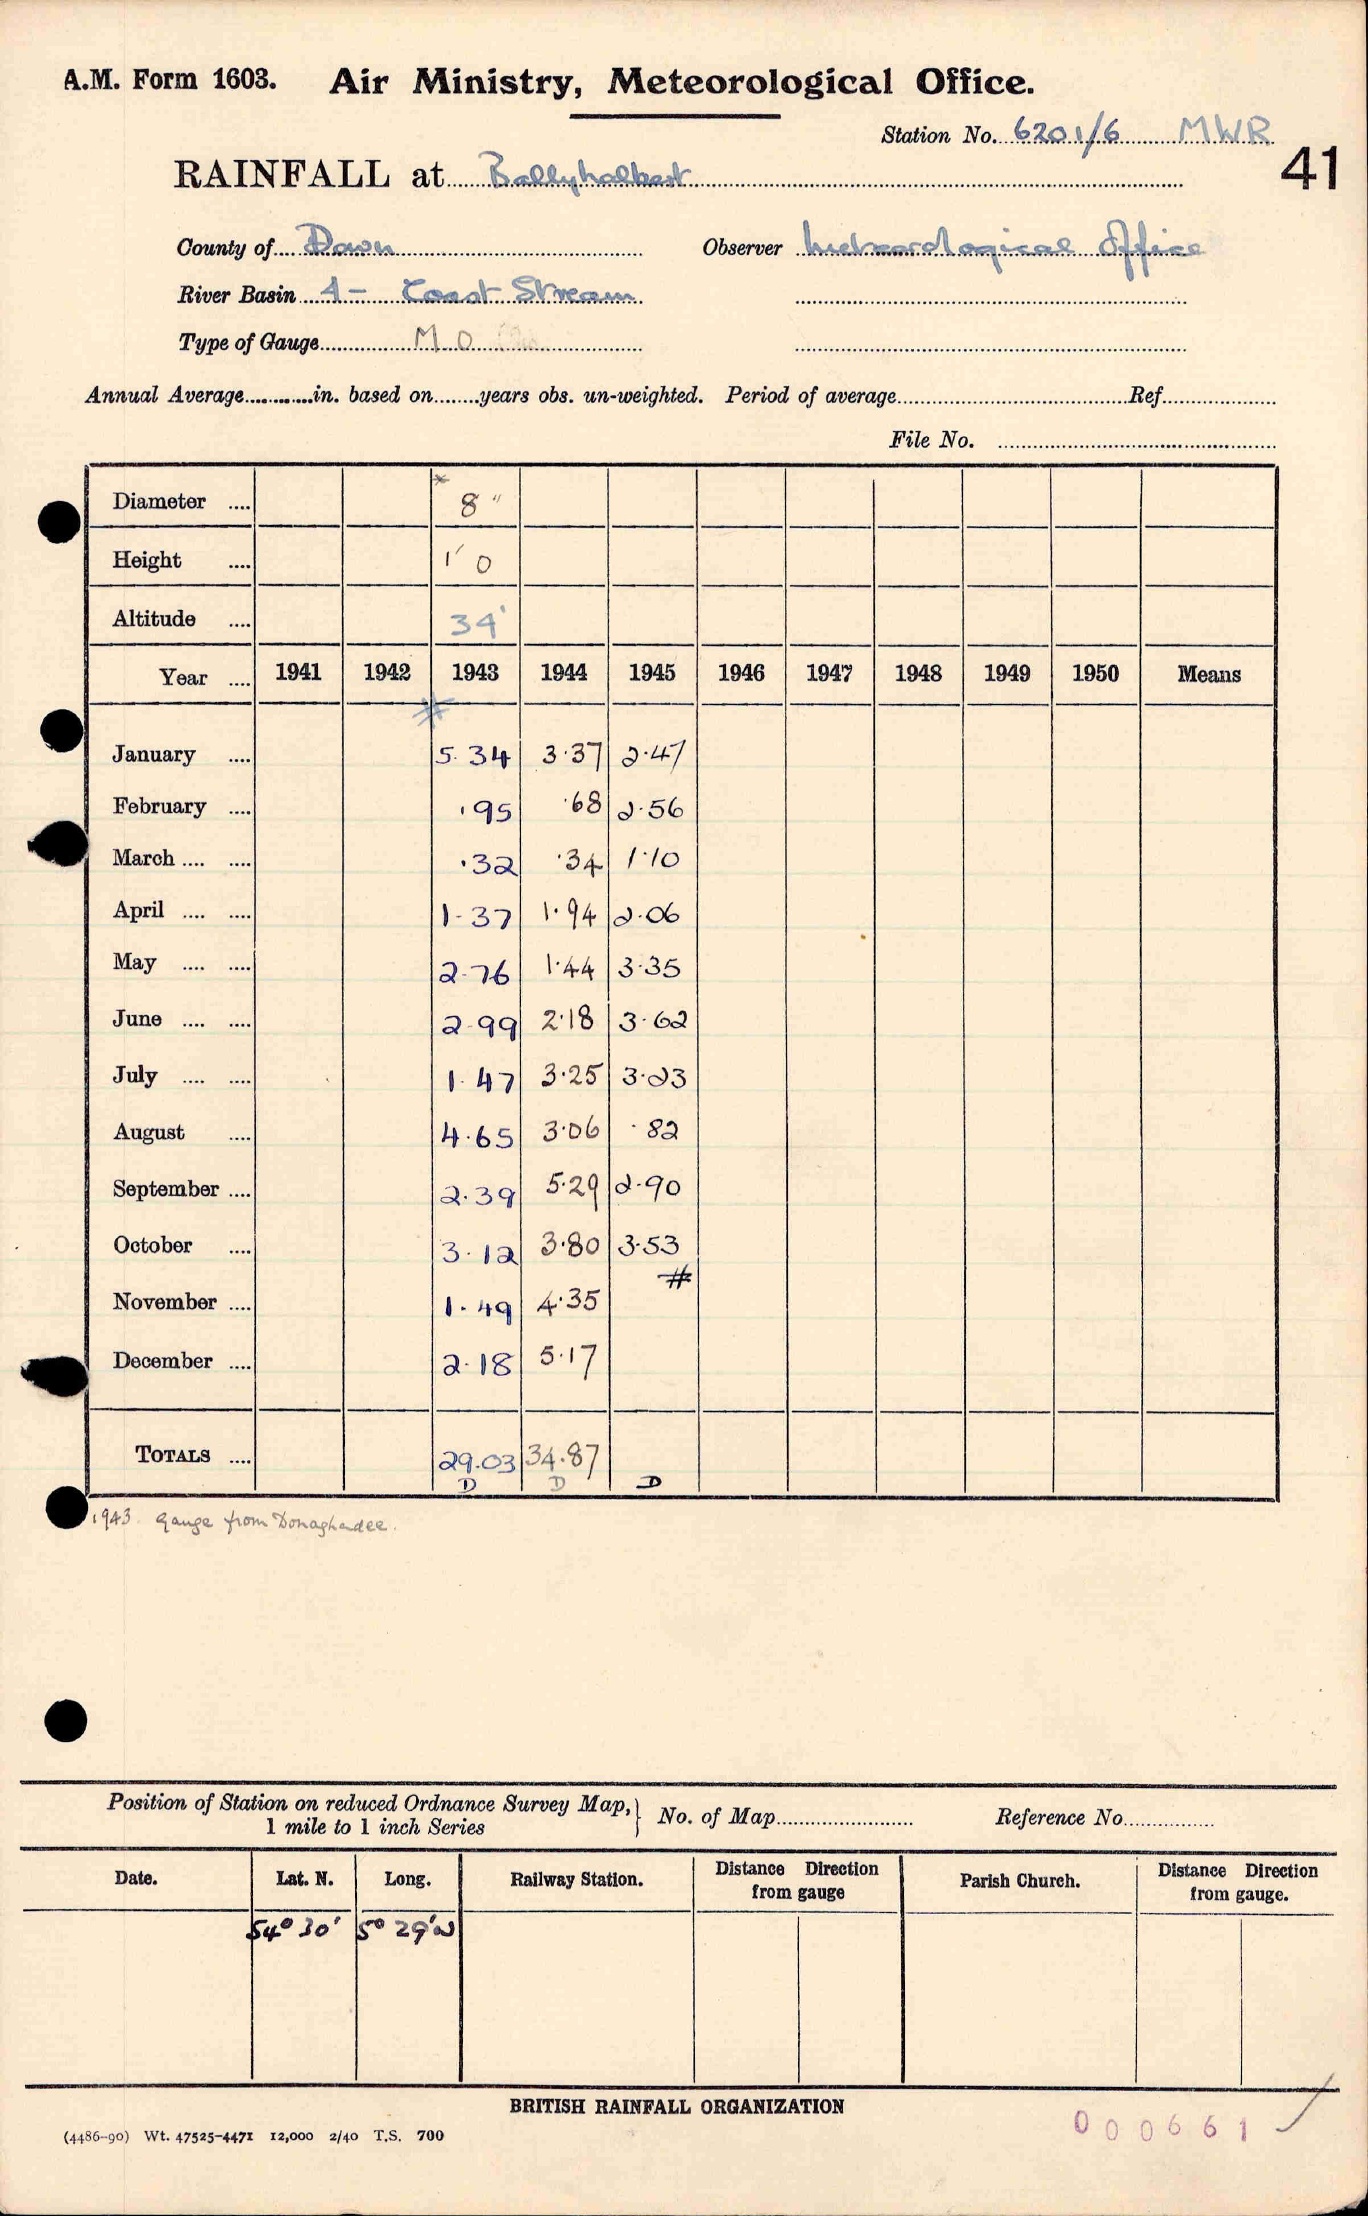 A.M. Form 1603. Air Ministry, Meteorological Office.
Station No. 6201/6 MWR
41
RAINFALL at Ballyhalbert
County of Down Observer Meteorological Office
River Basin 4 - Coast Stream
Type of Gauge M O
Annual Average in. based on years obs. un-weighted. Period of average Ref
File No.
Diameter * 8"
Height 1' 0
Altitude 34'
Year 1941 1942 1943 1944 1945 1946 1947 1948 1949 1950 Means
#
January 5.34 3.37 2.47
February .95 .68 2.56
March .32 .34 1.10
April 1.37 1.94 2.06
May 2.76 1.44 3.35
June 2.99 2.18 3.62
July 1.47 3.25 3.23
August 4.65 3.06 .82
September 2.39 5.29 2.90
October 3.12 3.80 3.53
#
November 1.49 4.35
December 2.18 5.17
TOTALS 29.03 34.87
D D D
1943 Gauge from Donaghadee.
Position of Station on reduced Ordnance Survey Map, 1 mile to 1 inch Series } No. of Map Reference No.
Date. Lat. N. Long. Railway Station. Distance Direction from gauge Parish Church. Distance Direction from gauge.
54° 30' 5° 29'W
BRITISH RAINFALL ORGANIZATION
(4486-90) Wt. 47525-4471 12,000 2/40 T.S. 700
000661